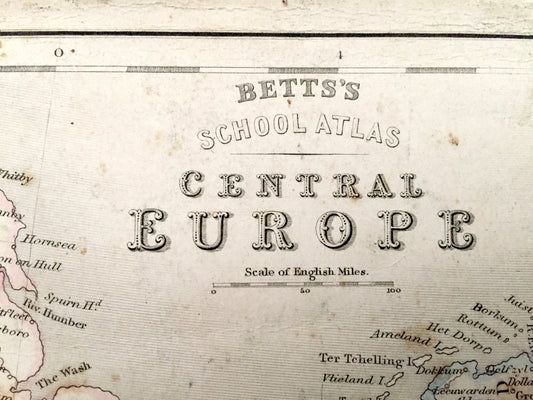 0 4
BETTS'S
SCHOOL ATLAS
CENTRAL
EUROPE
Scale of English Miles.
0 50 100
Whitby
Hornsea
on on Hull
Spurn Hd
Riv. Humber
The Wash
Juist
Borkum
Rottum
Het Dorp
Ameland I.
Ter Tchelling I.
Dokkum
Delfzyl
Vlieland I.
Leeuwarden
Dolla